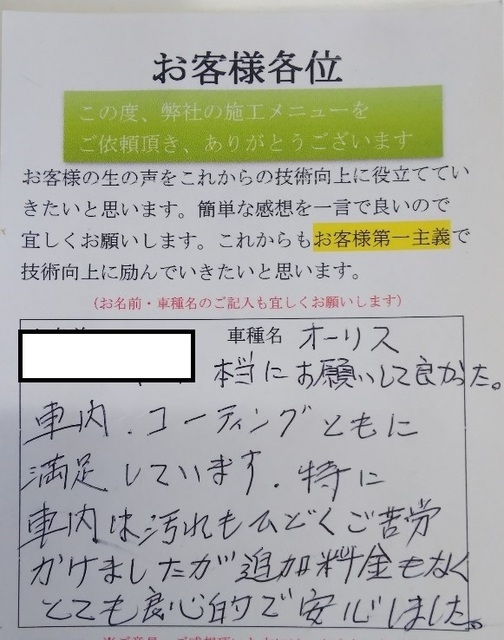 お客様各位
この度、弊社の施工メニューを
ご依頼頂き、ありがとうございます
お客様の生の声をこれからの技術向上に役立ててい
きたいと思います。簡単な感想を一言で良いので
宜しくお願いします。これからもお客様第一主義で
技術向上に励んでいきたいと思います。
(お名前・車種名のご記入も宜しくお願いします)
車種名 オーリス
本当にお願いして良かった。
車内.コーティングともに
満足しています.特に
車内は汚れもひどくご苦労
かけましたが追加料金もなく
とても良心的で安心しました。